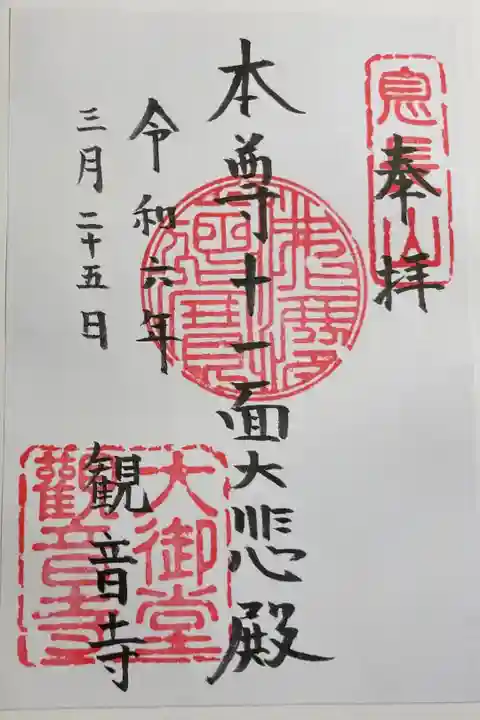 奉拝
息長山
本尊十一面大悲殿
令和六年
三月二十五日
観音寺
大御堂
觀音寺